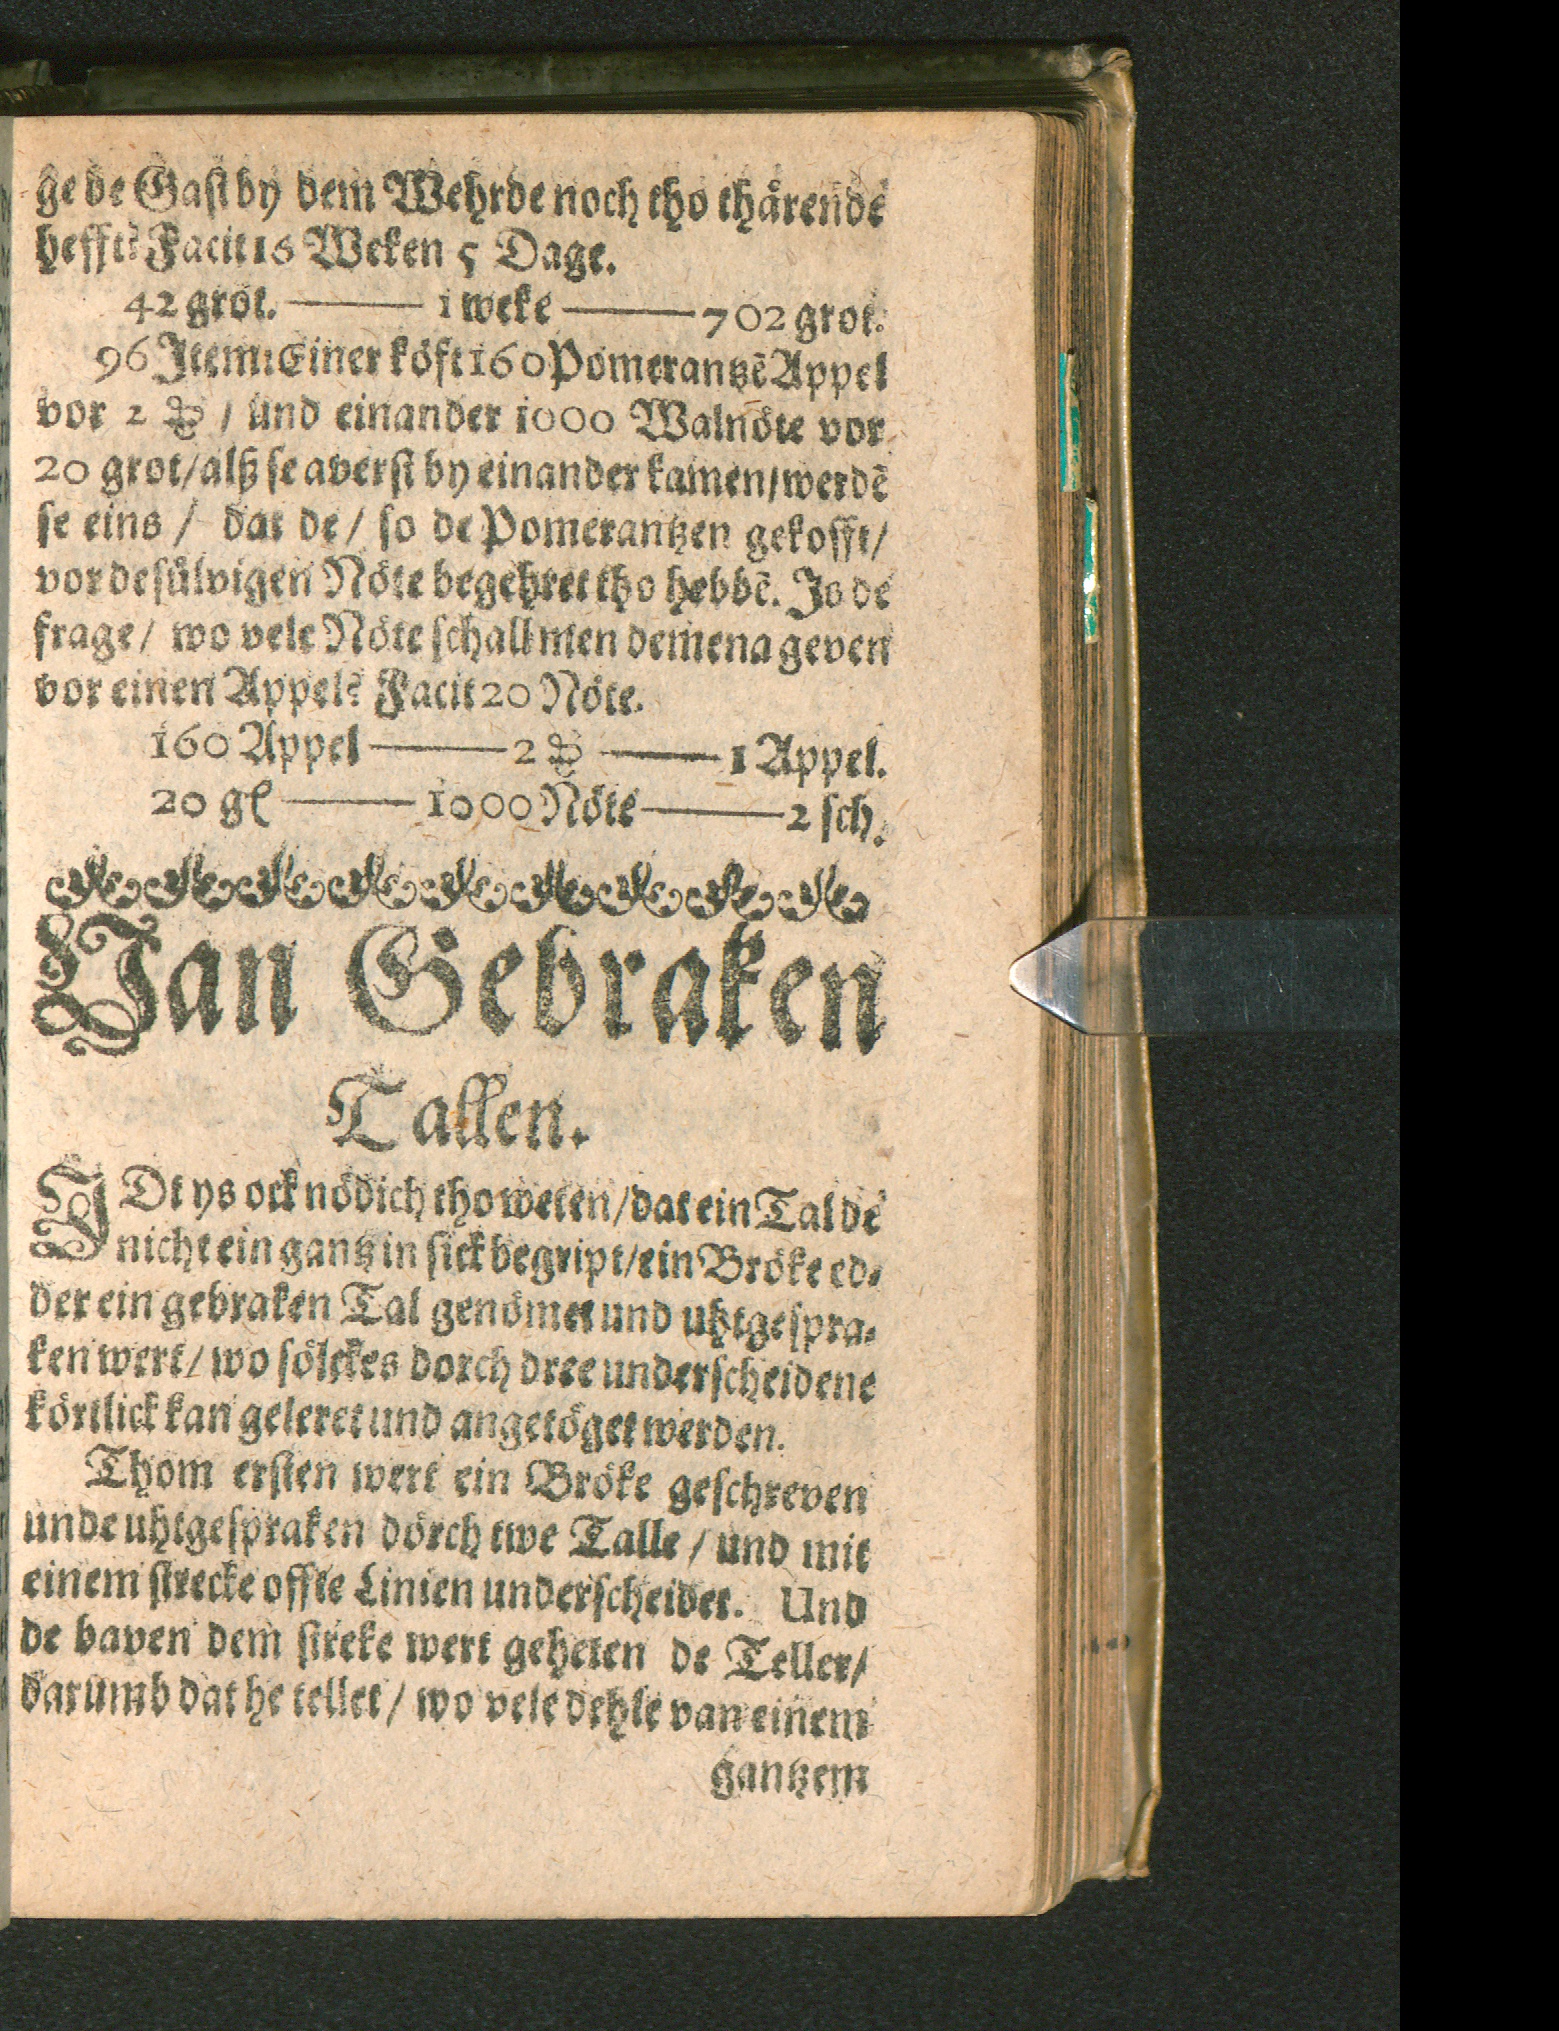 ge de Gast by dem Wehrde noch tho thärende
hefft? Facit 16 Weken 5 Dage.
42 grot. —— 1 weke —— 702 grot.
96 Item: Einer köft 160 Pomerantzē Appel
vor 2 / und einander 1000 Walnöte vor
20 grot / alß se averst by einander kamen / werdē
se eins / dat de / so de Pomerantzen gekofft /
vor desülvigen Nöte begehret tho hebbē. Is de
frage / wo vele Nöte schall men demena geven
vor einen Appel? Facit 20 Nöte.
160 Appel —— 2 —— 1 Appel.
20 gl —— 1000 Nöte —— 2 sch.
Van Gebraken
Tallen.
IDt ys ock nödich tho weten / dat ein Tal de
nicht ein gantz in sick begript / ein Bröke ed-
der ein gebraken Tal genömet und uhtgespra-
ken wert / wo sölckes dorch dree underscheidene
körtlick kan geleret und angetöget werden.
Thom ersten wert ein Bröke geschreven
unde uhtgespraken dörch twe Talle / und mit
einem strecke offte Linien underscheidet. Und
de baven dem streke wert geheten de Teller /
darumb dat he tellet / wo vele dehle van einem
gantzem